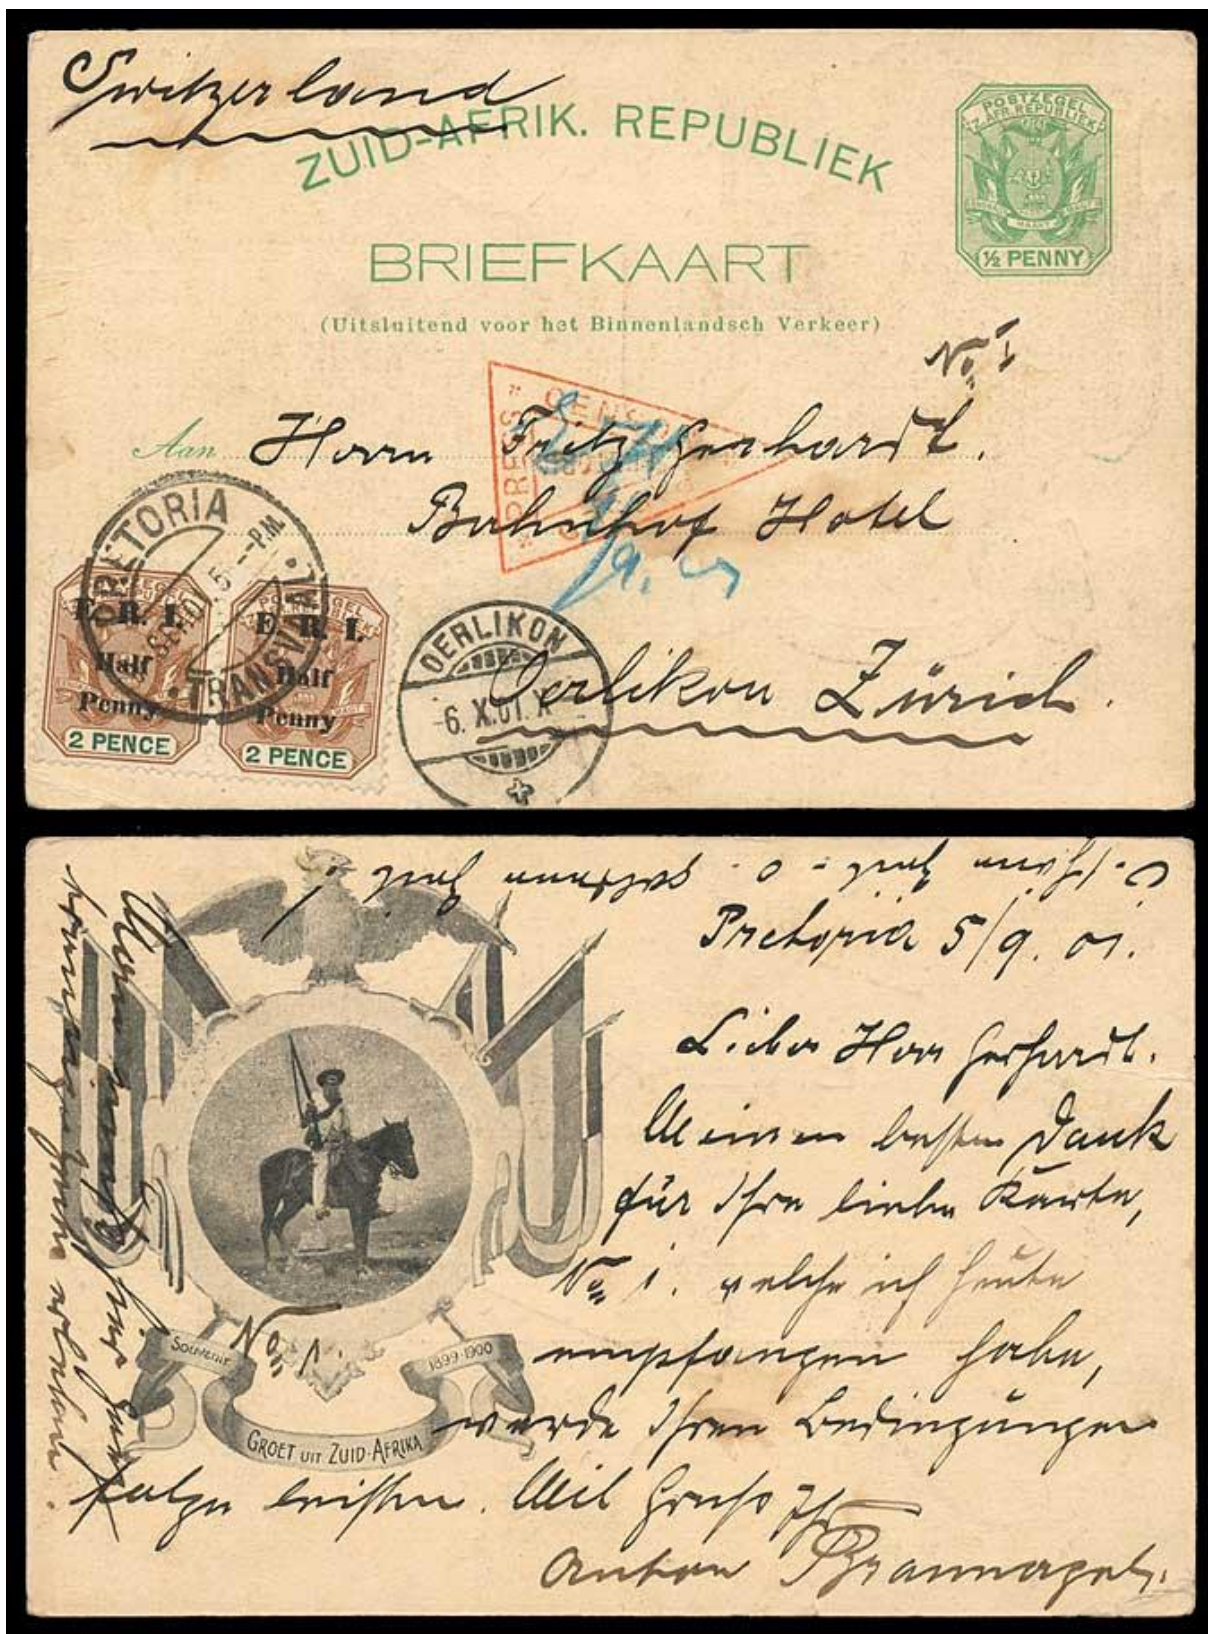 Switzerland
ZUID-AFRIK. REPUBLIEK
POSTZEGEL
Z. AFR. REPUBLIEK
½ PENNY
BRIEFKAART
(Uitsluitend voor het Binnenlandsch Verkeer)
No 1
PRESS
CENSOR
Aan Herrn Fritz Gerhardt.
Bahnhof Hotel
Oerlikon Zürich.
PRETORIA
SE 1901 5 - P.M.
TRANSVAAL
E. R. I.
Half
Penny
2 PENCE
E. R. I.
Half
Penny
2 PENCE
OERLIKON
-6. X.01. X
Pretoria 5/9. 01.
Lieber Herr Gerhardt.
Meinen besten Dank
für Ihre liebe Karte,
No 1. welche ich heute
empfangen habe,
werde Ihren Bedingungen
folge leisten. Mit Gruss Ihr
Anton
No 1.
SOUVENIR
1899-1900
GROET UIT ZUID-AFRIKA